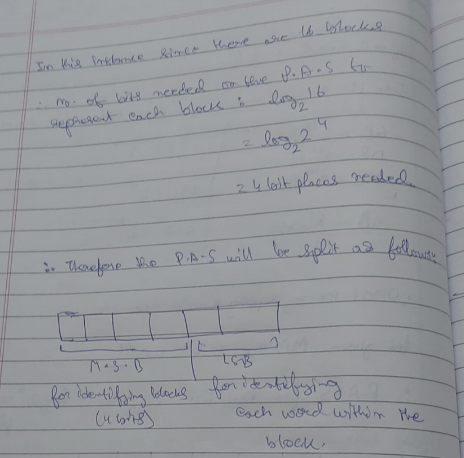 In this instance since there are 16 blocks
∴ No. of bits needed on the P.A.S to
represent each block : log₂16
= log₂2⁴
= 4 bit places needed.
∴ Therefore the P.A.S will be split as follows
M.S.B
LSB
for identifying blocks
(4 bits)
for identifying
each word within the
block.